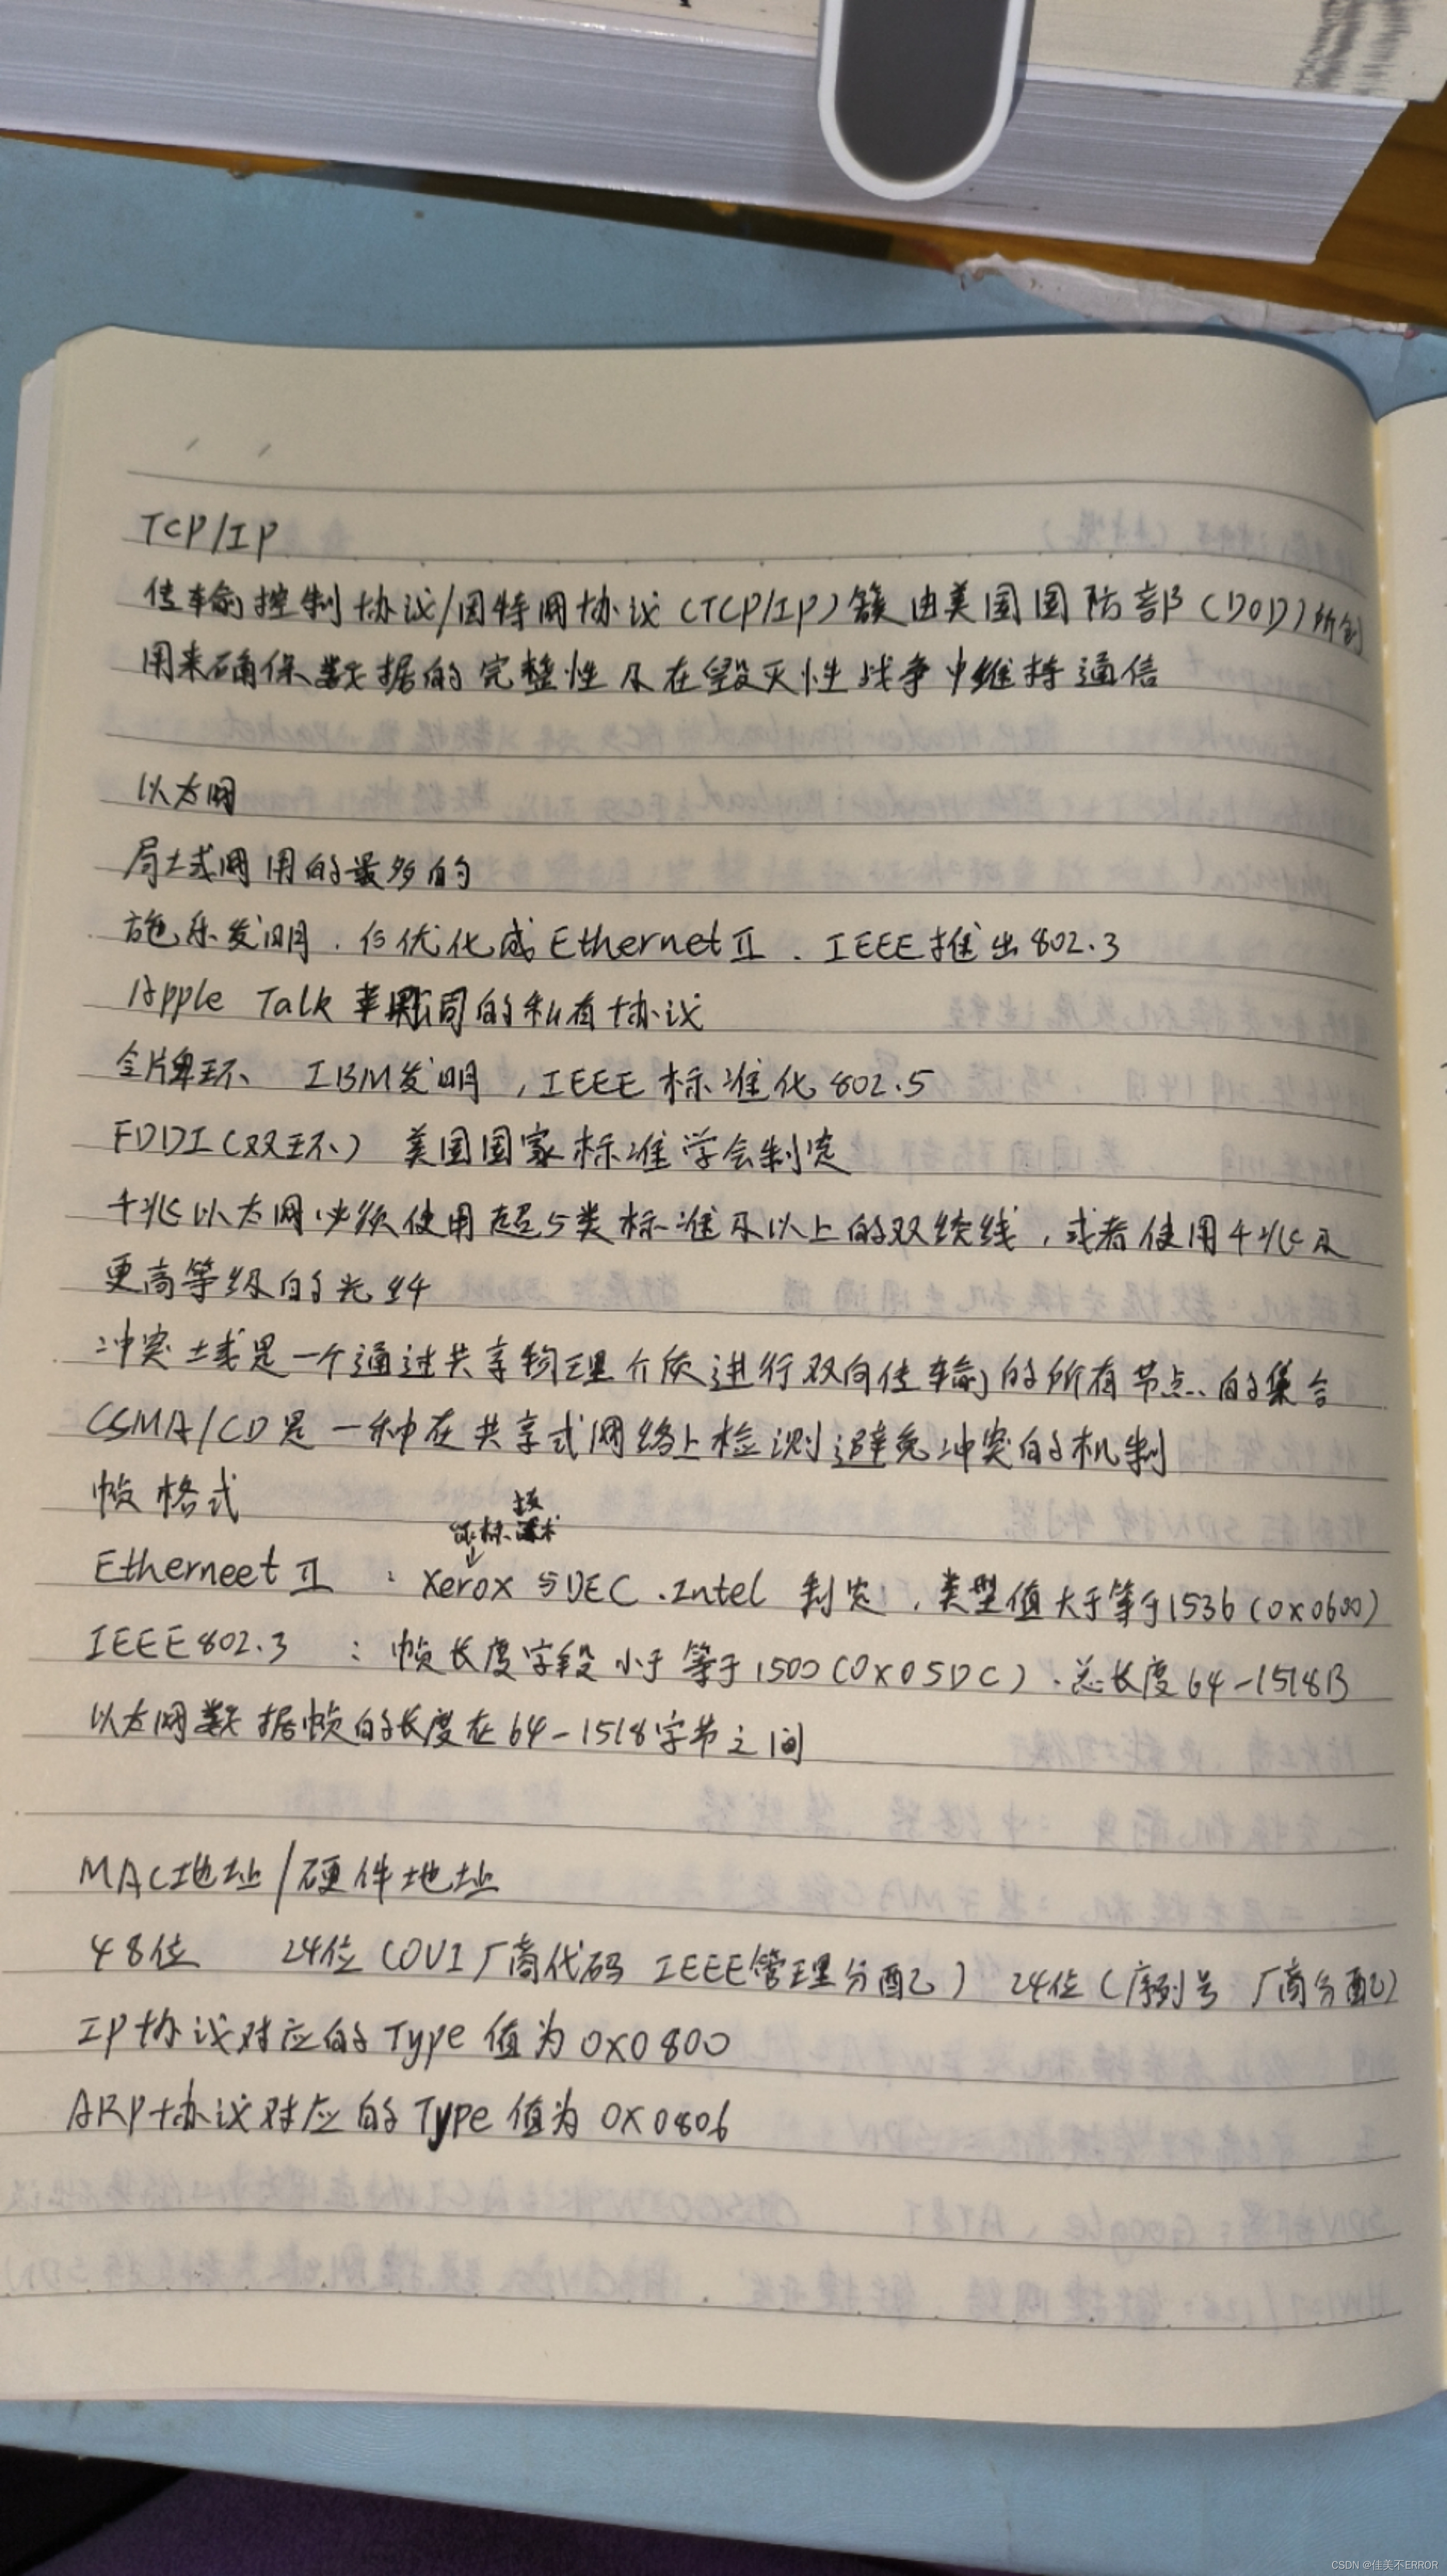 TCP/IP
传输控制协议/因特网协议(TCP/IP)簇由美国国防部(DOD)所创
用来确保数据的完整性及在毁灭性战争中维持通信
以太网
局域网用的最多的
施乐发明.后优化成EthernetⅡ.IEEE推出802.3
Apple Talk 苹果公司的私有协议
令牌环 IBM发明,IEEE标准化802.5
FDDI(双环) 美国国家标准学会制定
千兆以太网必须使用超5类标准及以上的双绞线,或者使用千兆及
更高等级的光纤
冲突域是一个通过共享物理介质进行双向传输的所有节点的集合
CSMA/CD是一种在共享式网络上检测避免冲突的机制
帧格式
Etherneet Ⅱ : Xerox与DEC.Intel 制定,类型值大于等于1536(0x0600)
IEEE802.3 : 帧长度字段小于等于1500(0x05DC).总长度64-1518B
以太网数据帧的长度在64-1518字节之间
MAC地址/硬件地址
48位 24位(OUI厂商代码 IEEE管理分配) 24位(序列号 厂商分配)
IP协议对应的Type值为0x0800
ARP协议对应的Type值为0x0806
CSDN @佳美不ERROR